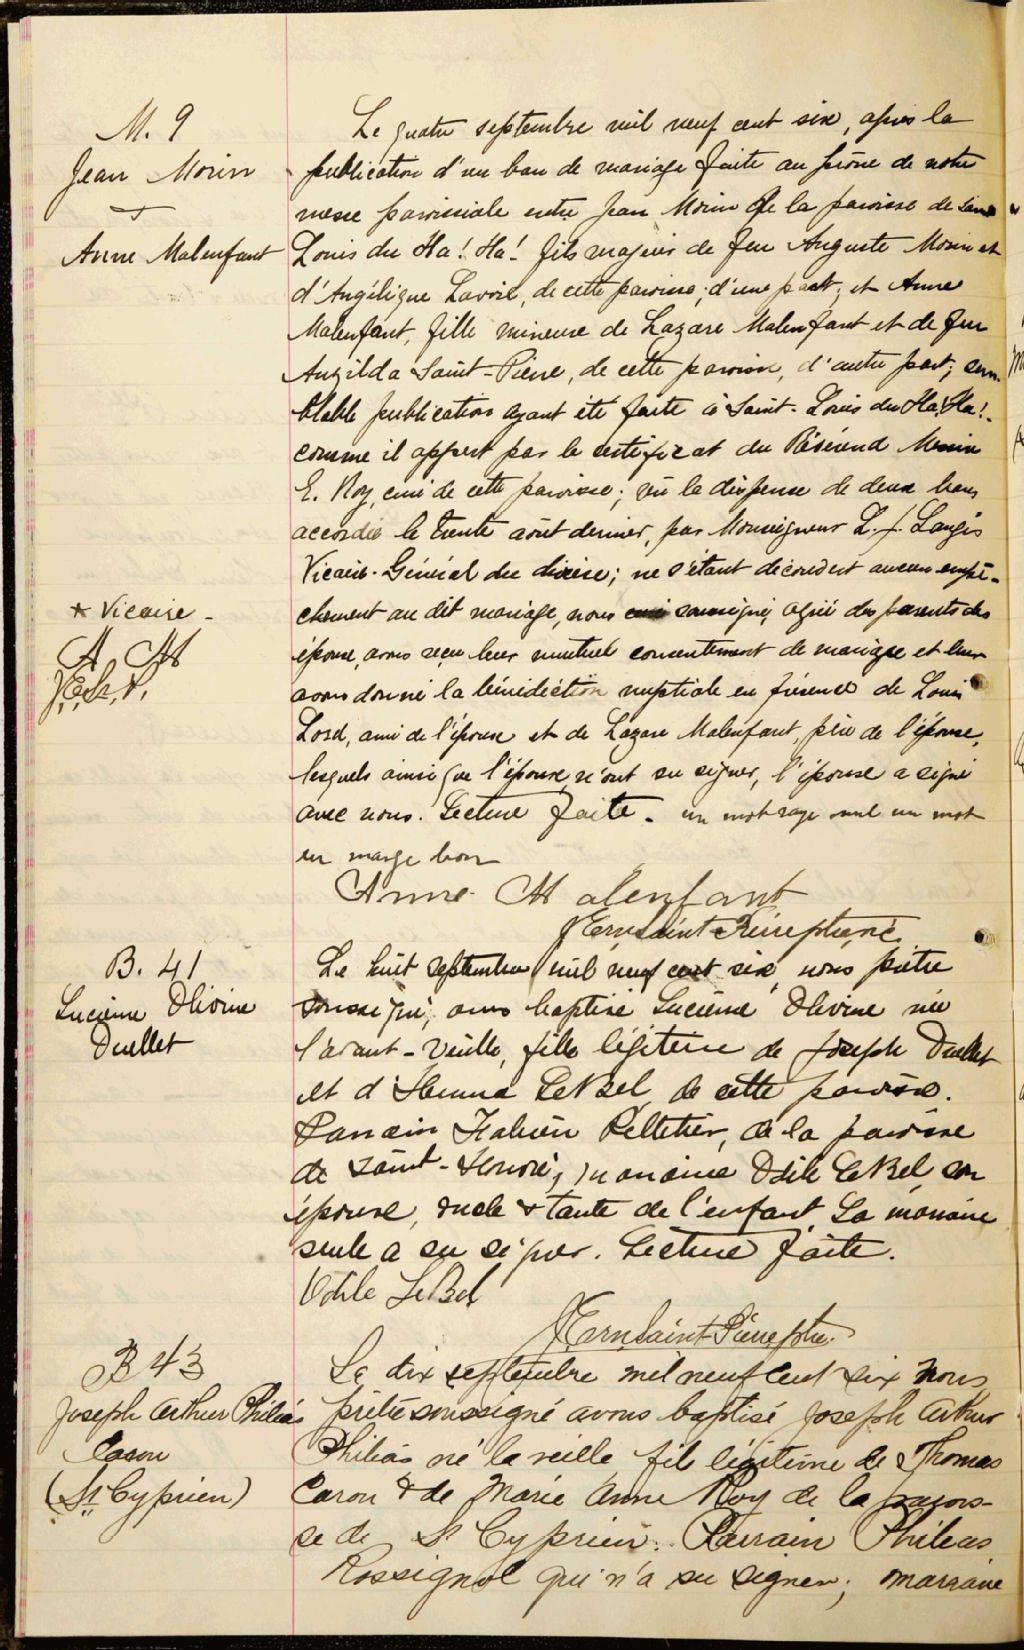 M. 9
Jean Morin
&
Anne Malenfant
Le quatre septembre mil neuf cent six, après la
publication d'un ban de mariage faite au prône de notre
messe paroissiale entre Jean Morin de la paroisse de Saint
Louis du Ha! Ha! fils majeur de feu Auguste Morin et
d'Angélique Lavoie, de cette paroisse, d'une part; et Anne
Malenfant, fille mineure de Lazare Malenfant et de feu
Auzilda Saint-Pierre, de cette paroisse, d'autre part; sem-
blable publication ayant été faite à Saint-Louis du Ha! Ha!
comme il appert par le certificat du Révérend Messire
E. Roy, curé de cette paroisse; vu la dispense de deux bans
accordée le trente août dernier, par Monseigneur L. J. Langis
Vicaire-Général du diocèse; ne s'étant découvert aucun empê-
chement au dit mariage, nous curé soussigné, agréé des parents des
époux, avons reçu leur mutuel consentement de mariage et leur
avons donné la bénédiction nuptiale en présence de Louis
Lord, ami de l'époux et de Lazare Malenfant, père de l'épouse,
lesquels ainsi que l'époux n'ont su signer, l'épouse a signé
avec nous. Lecture faite. un mot rayé nul un mot
en marge bon
* Vicaire -
A M
Anne Malenfant
J Ern Saint-Pierre ptre
B. 41
Lucienne Olivine
Ouellet
Le huit septembre mil neuf cent six, nous prêtre
soussigné, avons baptisé Lucienne Olivine née
l'avant-veille, fille légitime de Joseph Ouellet
et d'Emma LeBel de cette paroisse.
Parrain Fabien Pelletier, de la paroisse
de Saint-Honoré, marraine Odile LeBel son
épouse, oncle & tante de l'enfant. La marraine
seule a su signer. Lecture faite.
Odile LeBel
J Ern Saint-Pierre ptre.
B 43
Joseph Arthur Philéas
Caron
(St Cyprien)
Le dix septembre mil neuf cent six nous
prêtre soussigné avons baptisé Joseph Arthur
Philéas né la veille fils légitime de Thomas
Caron & de Marie Anne Roy de la parois-
se de St Cyprien. Parrain Philéas
Rossignol qui n'a su signer; marraine